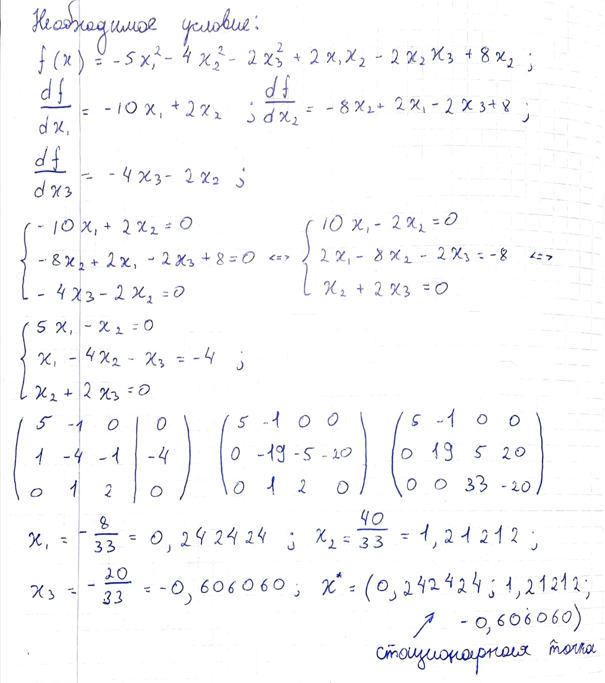 Необходимое условие:
f(x) = -5x₁² - 4x₂² - 2x₃² + 2x₁x₂ - 2x₂x₃ + 8x₂ ;
df/dx₁ = -10x₁ + 2x₂ ; df/dx₂ = -8x₂ + 2x₁ - 2x₃ + 8 ;
df/dx₃ = -4x₃ - 2x₂ ;
{ -10x₁ + 2x₂ = 0 { 10x₁ - 2x₂ = 0
-8x₂ + 2x₁ - 2x₃ + 8 = 0 <=> 2x₁ - 8x₂ - 2x₃ = -8 <=>
-4x₃ - 2x₂ = 0 x₂ + 2x₃ = 0
{ 5x₁ - x₂ = 0
x₁ - 4x₂ - x₃ = -4 ;
x₂ + 2x₃ = 0
( 5 -1 0 | 0 ) ( 5 -1 0 0 ) ( 5 -1 0 0 )
( 1 -4 -1 | -4 ) ( 0 -19 -5 -20 ) ( 0 19 5 20 )
( 0 1 2 | 0 ) ( 0 1 2 0 ) ( 0 0 33 -20 )
x₁ = -8/33 = 0,242424 ; x₂ = 40/33 = 1,21212 ;
x₃ = -20/33 = -0,606060 ; x* = (0,242424 ; 1,21212 ;
-0,606060)
стационарная точка